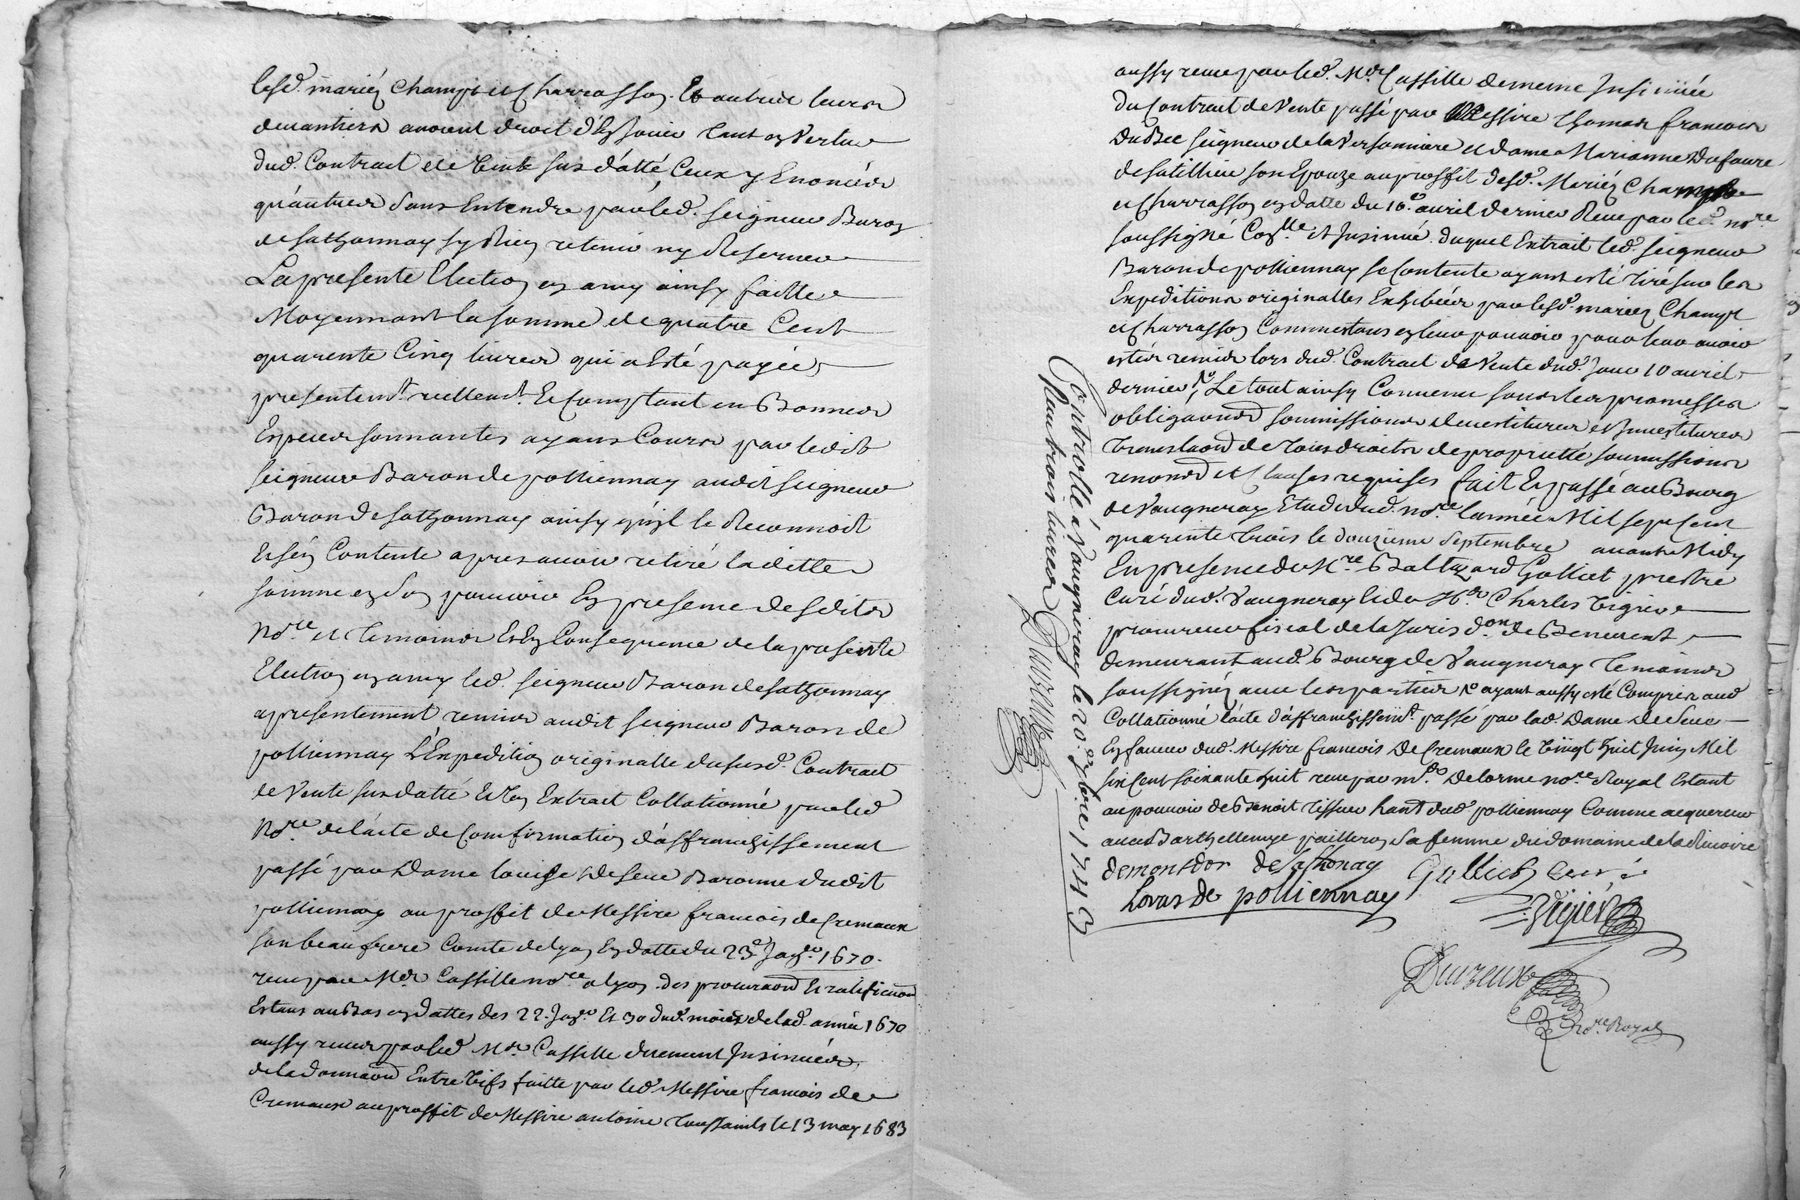 lesd. mariéz Champt et Charrasson. Et autres leurs
devantiers avoient droit d'En Jouir tant en Vertu
dud. Contract de Vente sus datté Ceux y Enoncéz
qu'autres Sans Entendre par led. Seigneur Baron
de Sathonnay sy Rien retenir ny Reserver
La presente Election en amy ainsy faitte
Moyennant la somme de quatre Cent
quarente Cinq livres qui a Esté payée
presentemt. reellemt. Et Comptant en Bonnes
Especes sonnantes ayans Cours par ledit
seigneur Baron de pollionnay audit seigneur
Baron de Sathonnay ainsy qu'il le Reconnoit
Et s'en Contente apres avoir retiré laditte
somme en son pouvoir En presence desdits
Nore. et temoins Et En Consequence de la presente
Election en amy led. seigneur Baron de Sathonnay
a presentement remis audit seigneur Baron de
pollionnay L'Expedition originalle du susd. Contract
de Vente sus datté Et En Extrait Collationné par led
Nore. de l'acte de Comfirmation d'affranchissement
passé par Dame louise de Seve Baronne dudit
pollionnay au proffit de Messire francois de Cremaux
son beau frere Comte de Lyon En datte du 23e. Janr. 1670.
receu par Mr. Cassille nore. a Lyon. des procuraons Et ratificaon
Estans au Bas en dattes des 22. Janr. Et 30 dud. mois de lad. année 1670
aussy receues par led. Mr. Cassille duement Insinuées
de la donnaon Entre Vifs faitte par led. Messire francois de
Cremaux au proffit de Messire antoine toussaints le 13 may 1683
aussy receue par led. Mr. Cassille de meme Insinuée
du Contract de Vente passé par Messire thomas francois
Dubec seigneur de la Versonniere et dame Marianne Dufaure
de Satillieu son Epouze au proffit desd. Mariéz Champt
et Charrasson en datte du 16e. avril dernier Receu par led. nore.
soussigné Conlle. et Insinué. duquel Extrait led. seigneur
Baron de pollionnay se Contente ayant esté tiré sur les
Expeditions originalles Exhibées par lesd. mariéz Champt
et Charrasson Comme estans en leur pouvoir pour leur avoir
estés remis lors dud. Contract de Vente dud. Jour 10 avril
dernier, Le tout ainsy Convenu sous les promesses
obligaons soumissions devestitures et Investitures
translaons de tous droits de proprietté soumissions
renonons et Clauses requises fait Et passé au Bourg
de Vaugneray Etude dud. nore. l'année Mil sept Cent
quarente trois le douzieme Septembre avant Midy
En presence de Mre. Baltazard Golliet prestre
Curé dud. Vaugneray Et de Sr. Charles Vigier
procureur fiscal de la Jurisdon. de Benevent
demeurant aud. Bourg de Vaugneray temoins
soussignéz avec les parties ayant aussy esté Compris aud
Collationné l'acte d'affranchissemt. passé par lad Dame de Seve
En faveur dud. Messire francois De Cremaux le Vingt huit Juin Mil
six Cent soixante huit receu par mr. Delorme nore. Royal Estant
au pouvoir de Benoit tisseur hant. dud pollionnay Comme acquereur
avec Barthellemye paillon sa femme du domaine de la
demontdor de sathonay Golliet Curé
Loras de pollionnay
Vigier
Duvreux
Nore. Royal
Controllé a Vaugneray le 20. 7bre 1743